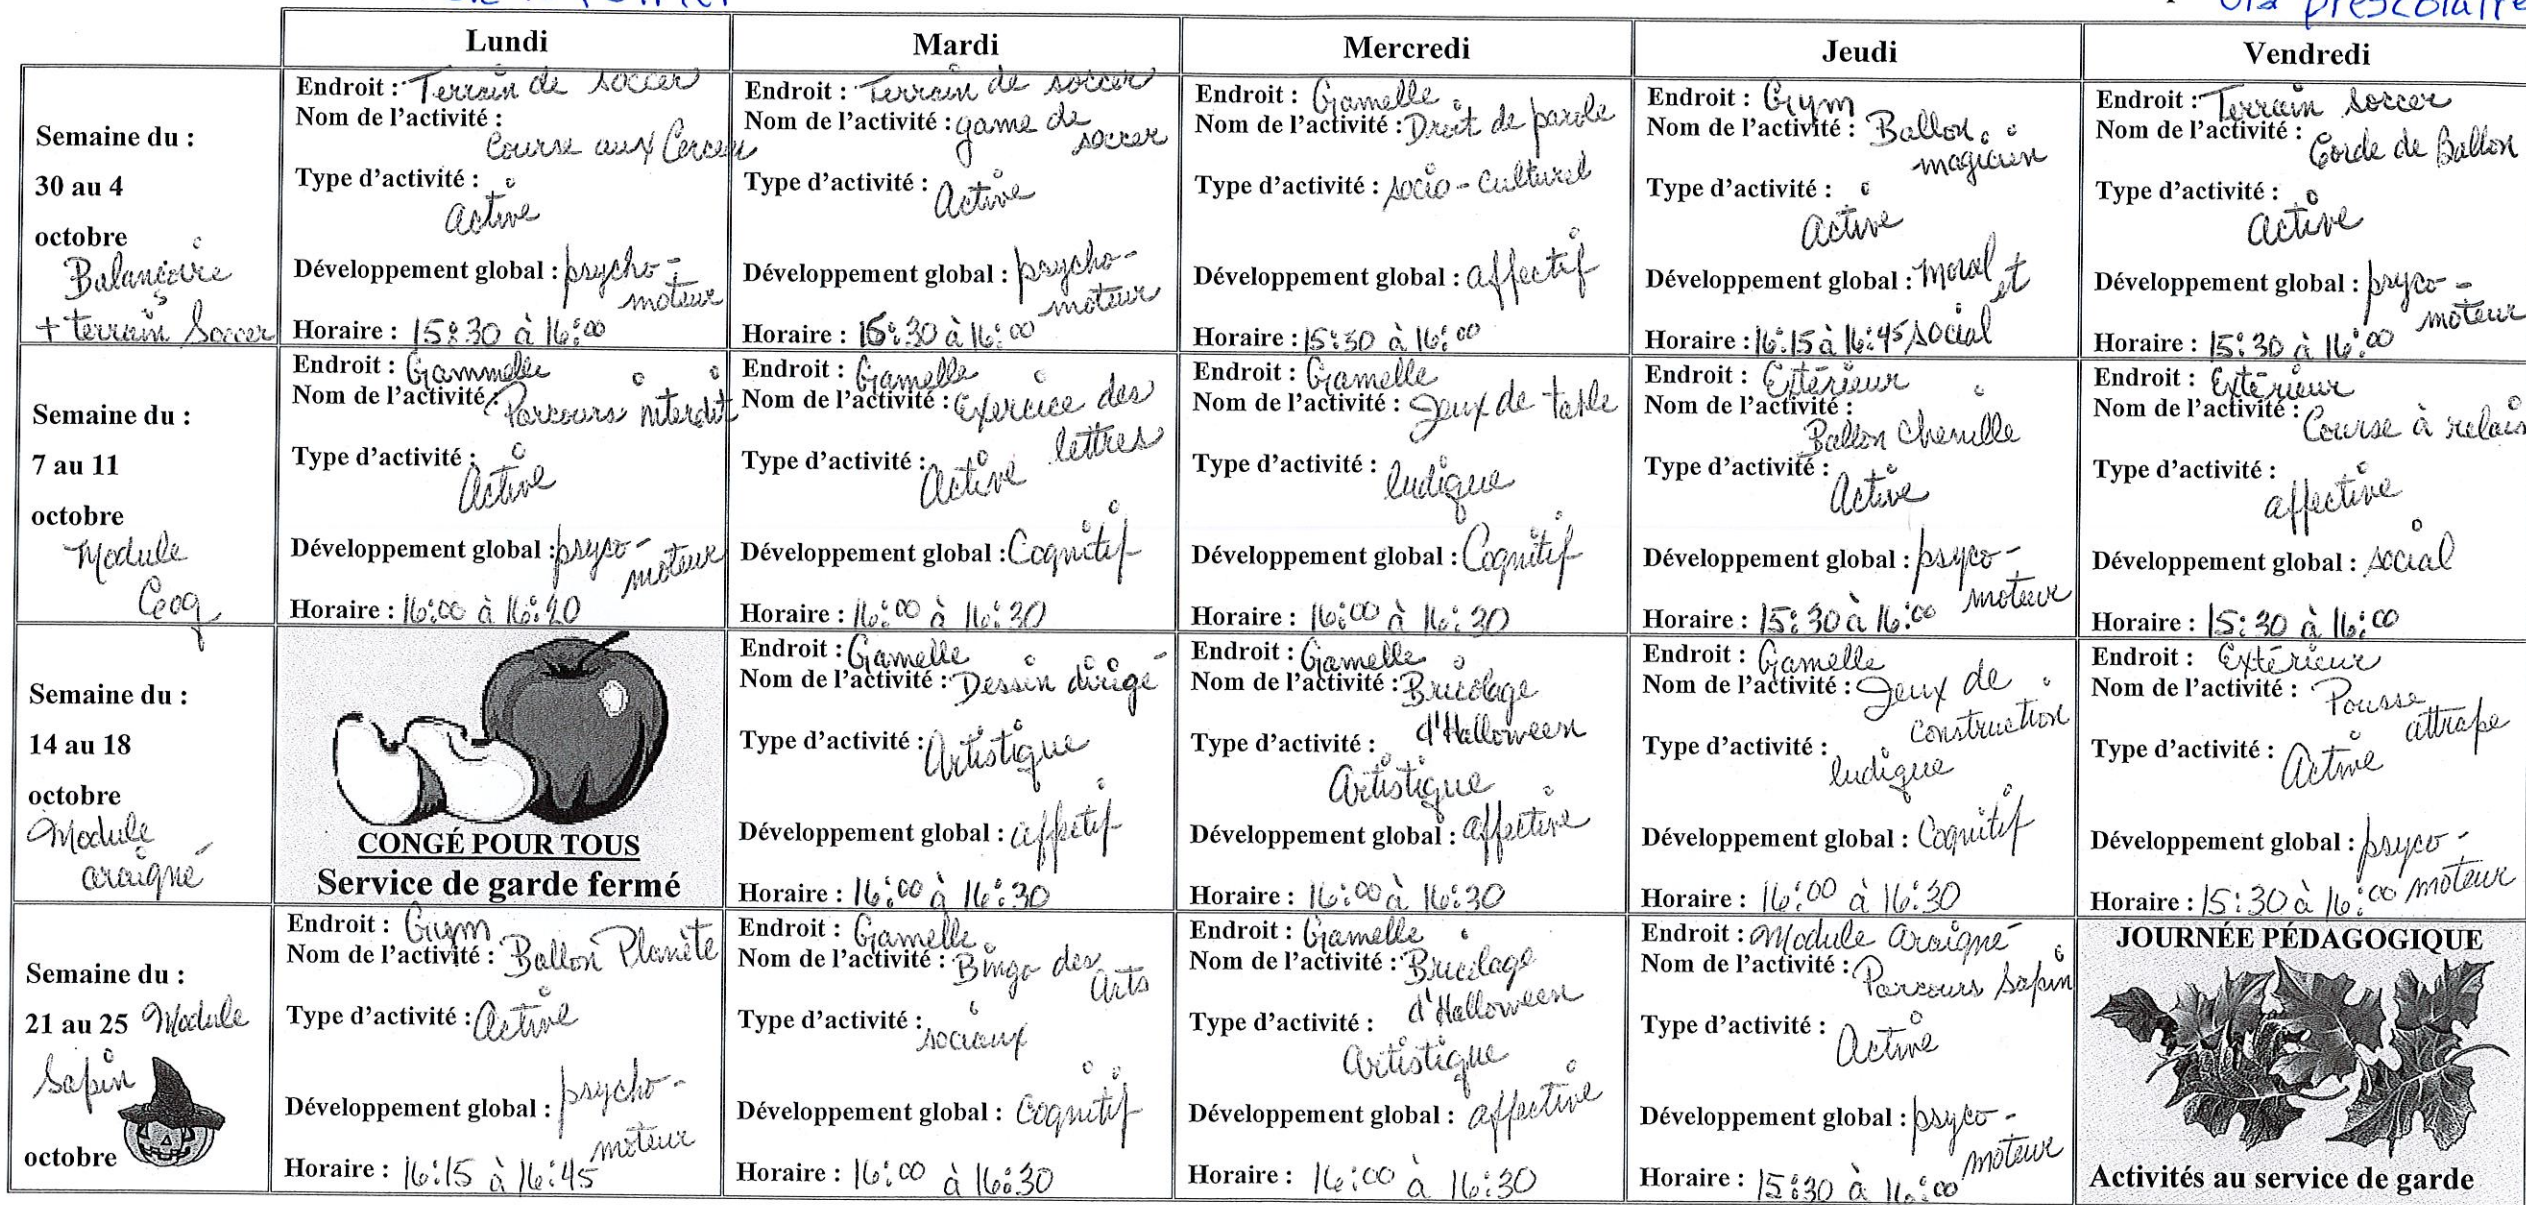 prescolaire
Lundi
Mardi
Mercredi
Jeudi
Vendredi
Semaine du :
30 au 4
octobre
Balançoire
+ terrain Soccer
Endroit : Terrain de soccer
Nom de l'activité :
Course aux Cerceau
Type d'activité :
Active
Développement global : psycho-
moteur
Horaire : 15:30 à 16:00
Endroit : Terrain de soccer
Nom de l'activité : game de
soccer
Type d'activité : Active
Développement global : psycho-
moteur
Horaire : 15:30 à 16:00
Endroit : Gamelle
Nom de l'activité : Droit de parole
Type d'activité : socio-culturel
Développement global : affectif
Horaire : 15:30 à 16:00
Endroit : Gym
Nom de l'activité : Ballon
magicien
Type d'activité :
Active
Développement global : Moral et
Horaire : 16:15 à 16:45 social
Endroit : Terrain soccer
Nom de l'activité :
Corde de Ballon
Type d'activité :
Active
Développement global : psyco-
moteur
Horaire : 15:30 à 16:00
Semaine du :
7 au 11
octobre
Module
Coq
Endroit : Gammelle
Nom de l'activité : Parcours interdit
Type d'activité :
Active
Développement global : psyco-
moteur
Horaire : 16:00 à 16:20
Endroit : Gamelle
Nom de l'activité : Exercice des
lettres
Type d'activité : Active
Développement global : Cognitif
Horaire : 16:00 à 16:30
Endroit : Gamelle
Nom de l'activité : Jeux de table
Type d'activité : ludique
Développement global : Cognitif
Horaire : 16:00 à 16:30
Endroit : Extérieur
Nom de l'activité :
Ballon Chenille
Type d'activité :
Active
Développement global : psyco-
moteur
Horaire : 15:30 à 16:00
Endroit : Extérieur
Nom de l'activité : Course à relais
Type d'activité :
affective
Développement global : social
Horaire : 15:30 à 16:00
Semaine du :
14 au 18
octobre
Module
araigné
CONGÉ POUR TOUS
Service de garde fermé
Endroit : Gamelle
Nom de l'activité : Dessin dirigé
Type d'activité : Artistique
Développement global : affectif
Horaire : 16:00 à 16:30
Endroit : Gamelle
Nom de l'activité : Bricolage
d'Halloween
Type d'activité :
Artistique
Développement global : affective
Horaire : 16:00 à 16:30
Endroit : Gamelle
Nom de l'activité : Jeux de
construction
Type d'activité :
ludique
Développement global : Cognitif
Horaire : 16:00 à 16:30
Endroit : Extérieur
Nom de l'activité : Pousse
attrape
Type d'activité : Active
Développement global : psyco-
moteur
Horaire : 15:30 à 16:00
Semaine du :
21 au 25 Module
Sapin
octobre
Endroit : Gym
Nom de l'activité : Ballon Planète
Type d'activité : Active
Développement global : psycho-
moteur
Horaire : 16:15 à 16:45
Endroit : Gamelle
Nom de l'activité : Bingo des
arts
Type d'activité : sociaux
Développement global : Cognitif
Horaire : 16:00 à 16:30
Endroit : Gamelle
Nom de l'activité : Bricolage
d'Halloween
Type d'activité :
Artistique
Développement global : affective
Horaire : 16:00 à 16:30
Endroit : Module araigné
Nom de l'activité : Parcours Sapin
Type d'activité :
Active
Développement global : psyco-
moteur
Horaire : 15:30 à 16:00
JOURNÉE PÉDAGOGIQUE
Activités au service de garde